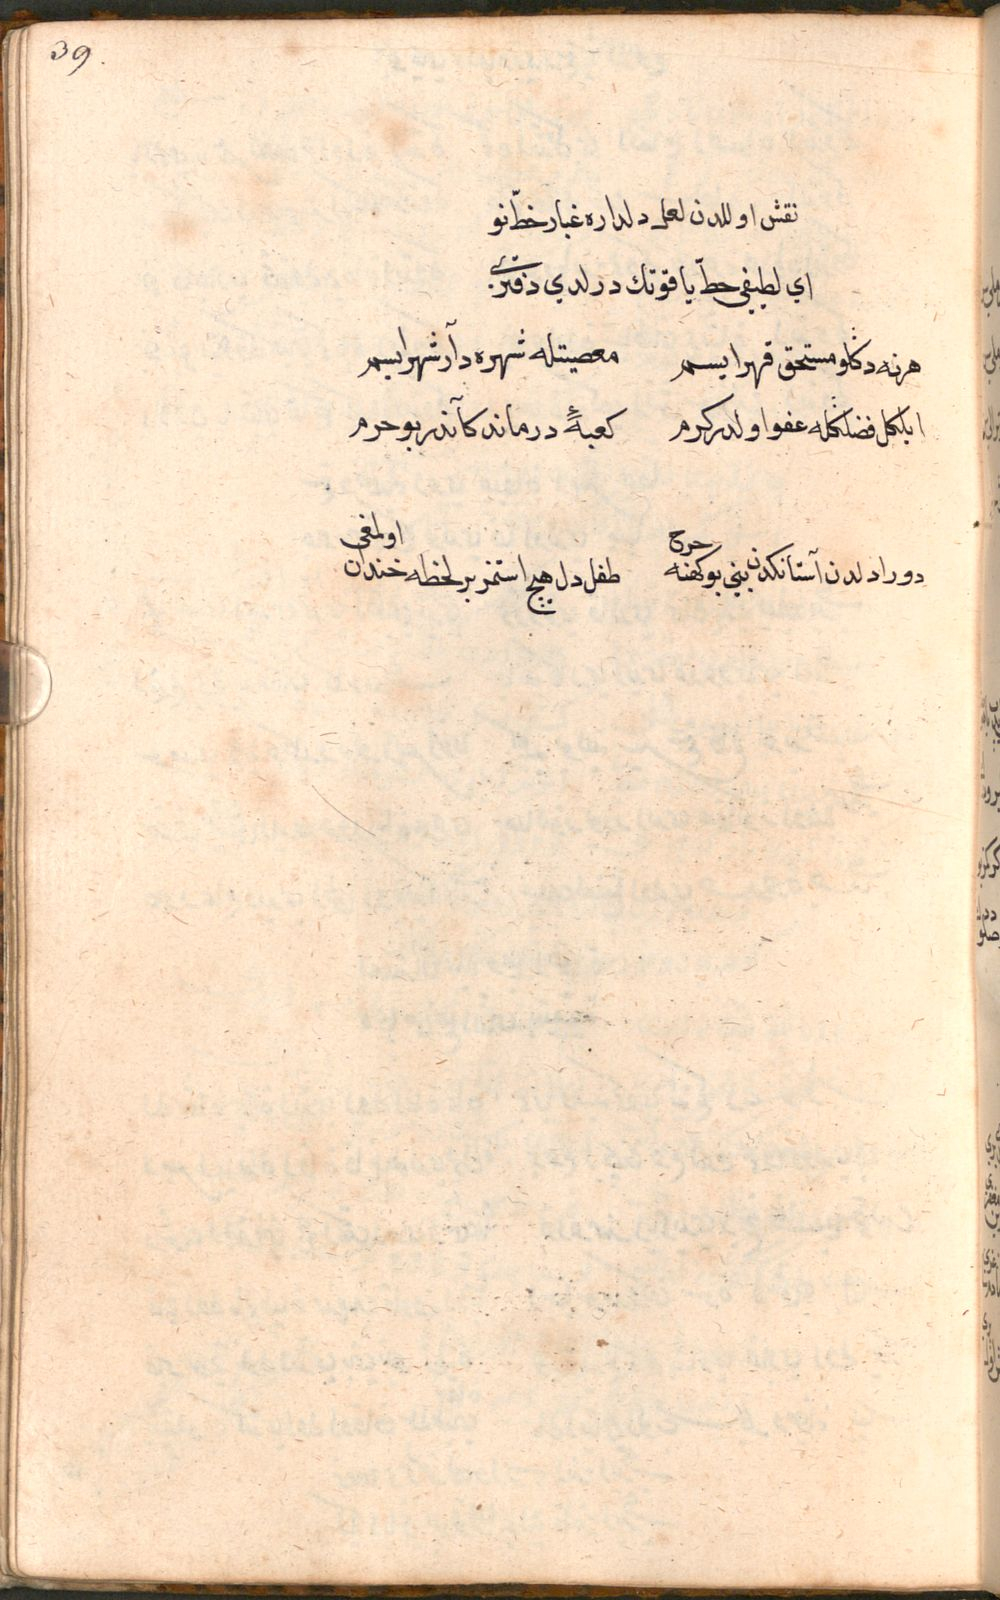 39.
نقش اوللدن لعل دلداره غبار خطّ نو
اي لطيفى خطّ ياقوتك درلدي دفترى
هرنه دكلو مستحق قهرايسم معصيتله شهره دآر شهرايسم
ايلكل فضلكله عفو اولدر كرم كعبهٔ درمانده كاندر بو حرم
دور ادلدن آستانكدن بنى بو كهنه چرخ طفل دل هيچ استمز بر لحظه خندان اولمغى